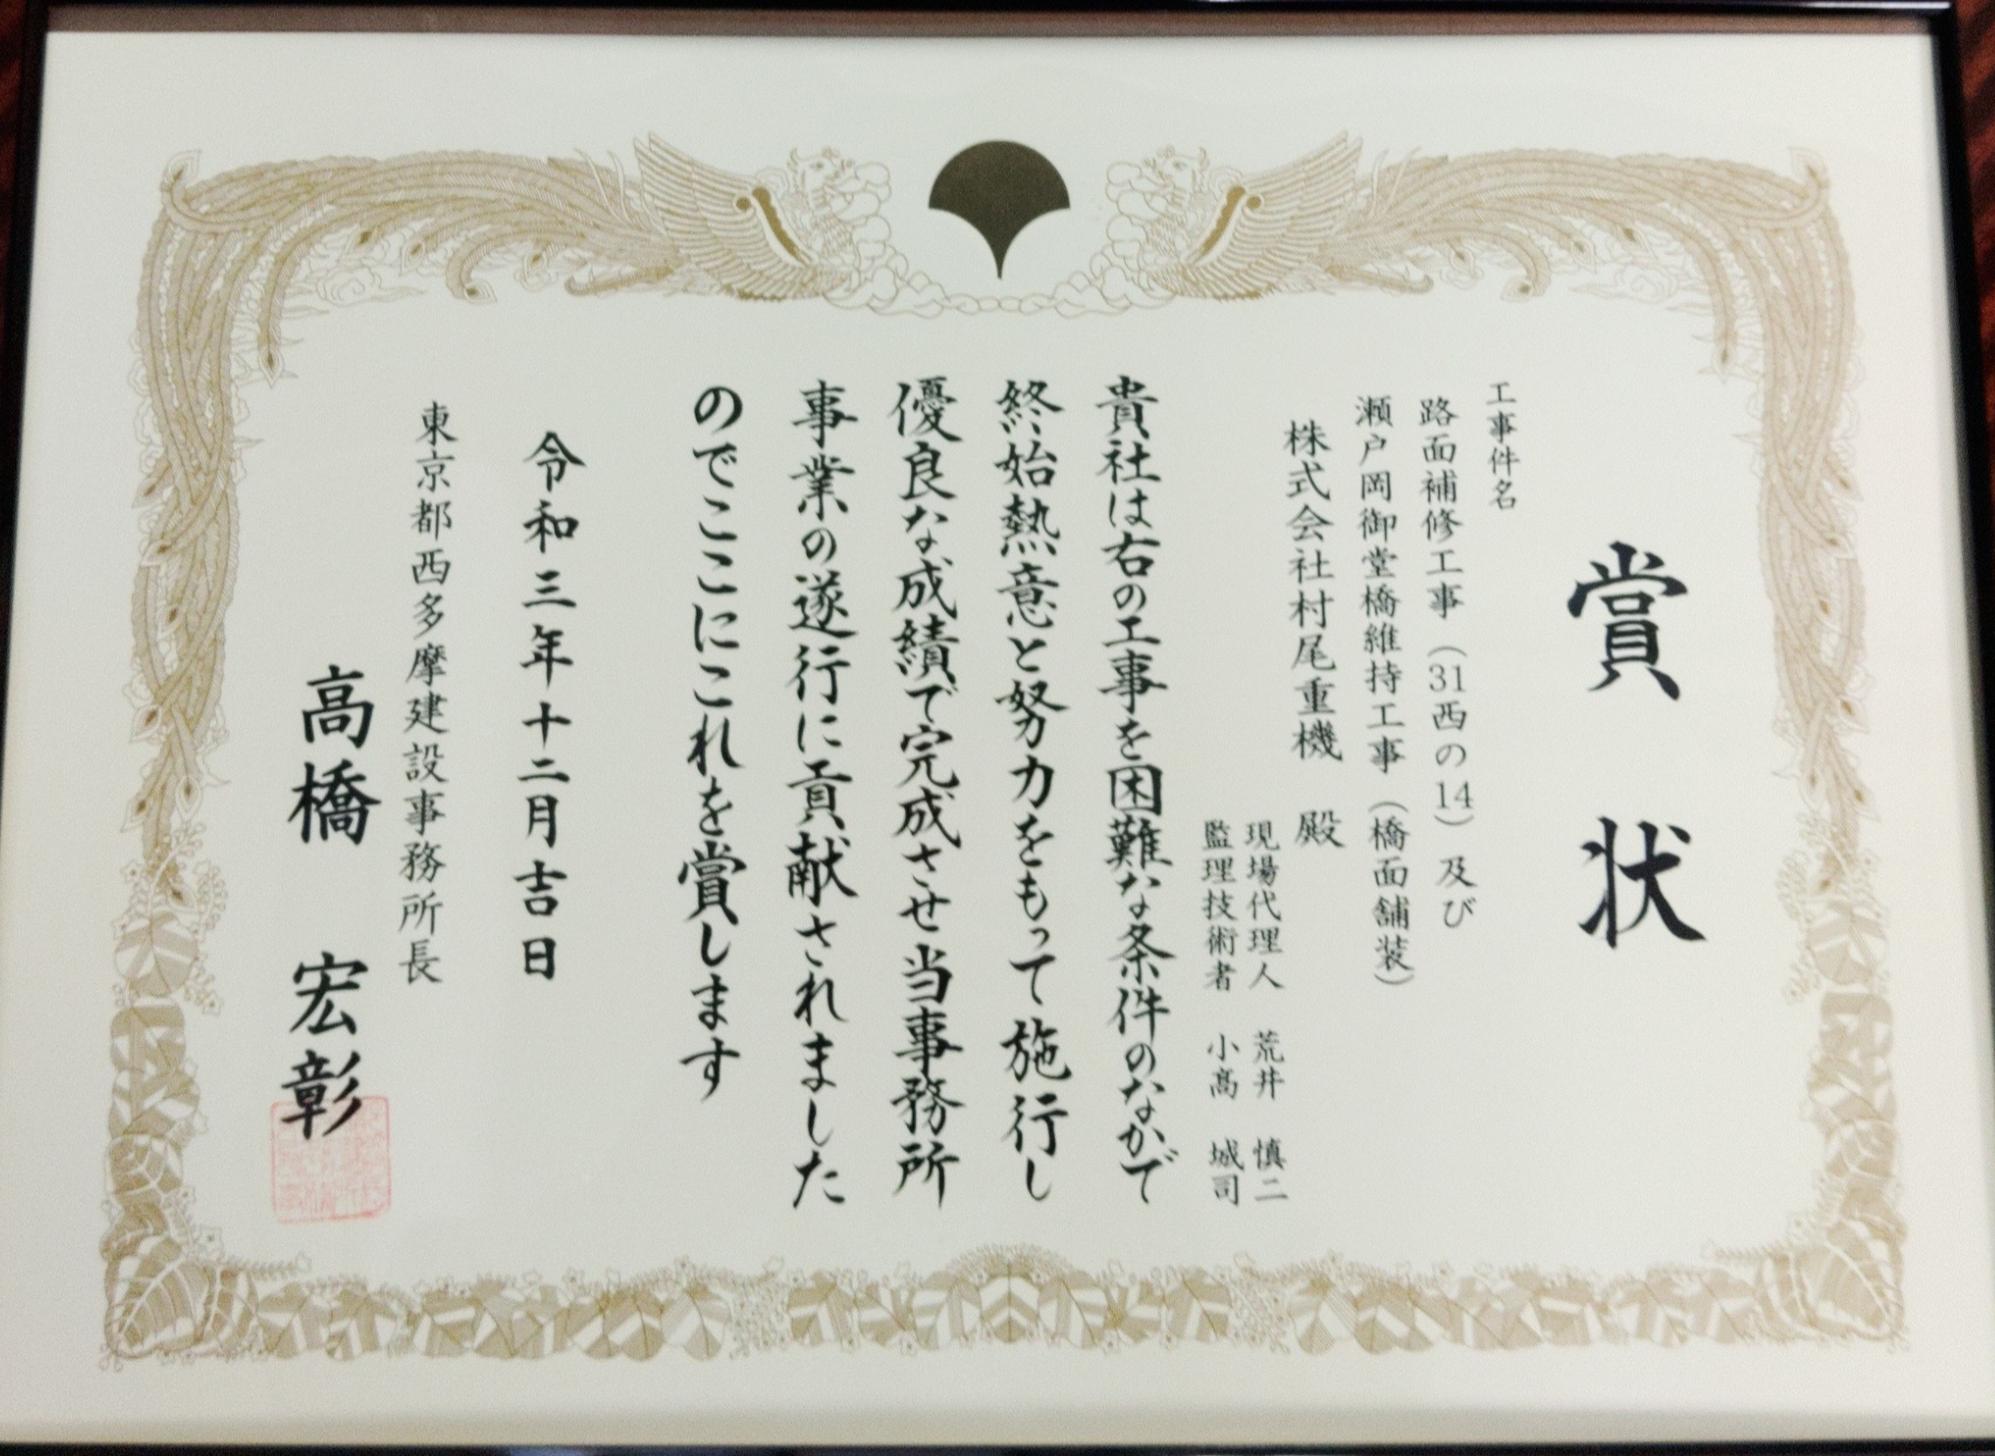 賞状
工事件名
路面補修工事（31西の14）及び
瀬戸岡御堂橋維持工事（橋面舗装）
株式会社村尾重機 殿
現場代理人 荒井 慎二
監理技術者 小髙 城司
貴社は右の工事を困難な条件のなかで
終始熱意と努力をもって施行し
優良な成績で完成させ当事務所
事業の遂行に貢献されました
のでここにこれを賞します
令和三年十二月吉日
東京都西多摩建設事務所長
高橋 宏彰